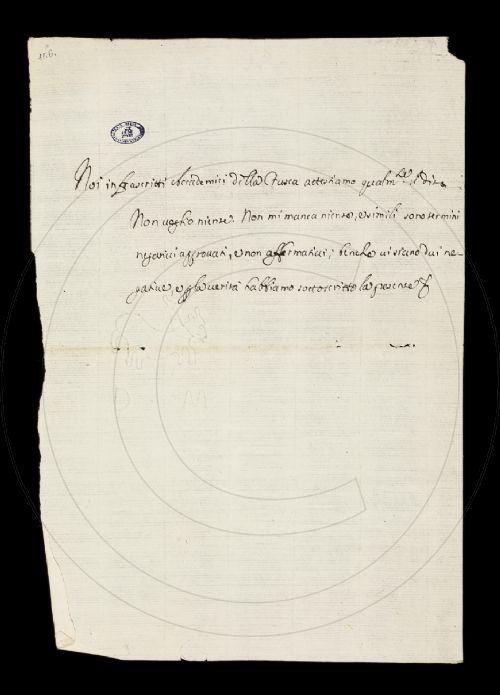 Noi infrascritti Accademici della Crusca attestiamo qualm.te il dire
Non voglio niente. Non mi manca niente, e simili sono termini
negativi approvati, e non affermativi; benche vi siano dui ne-
gative e p la verità habbiamo sottoscritto la presente